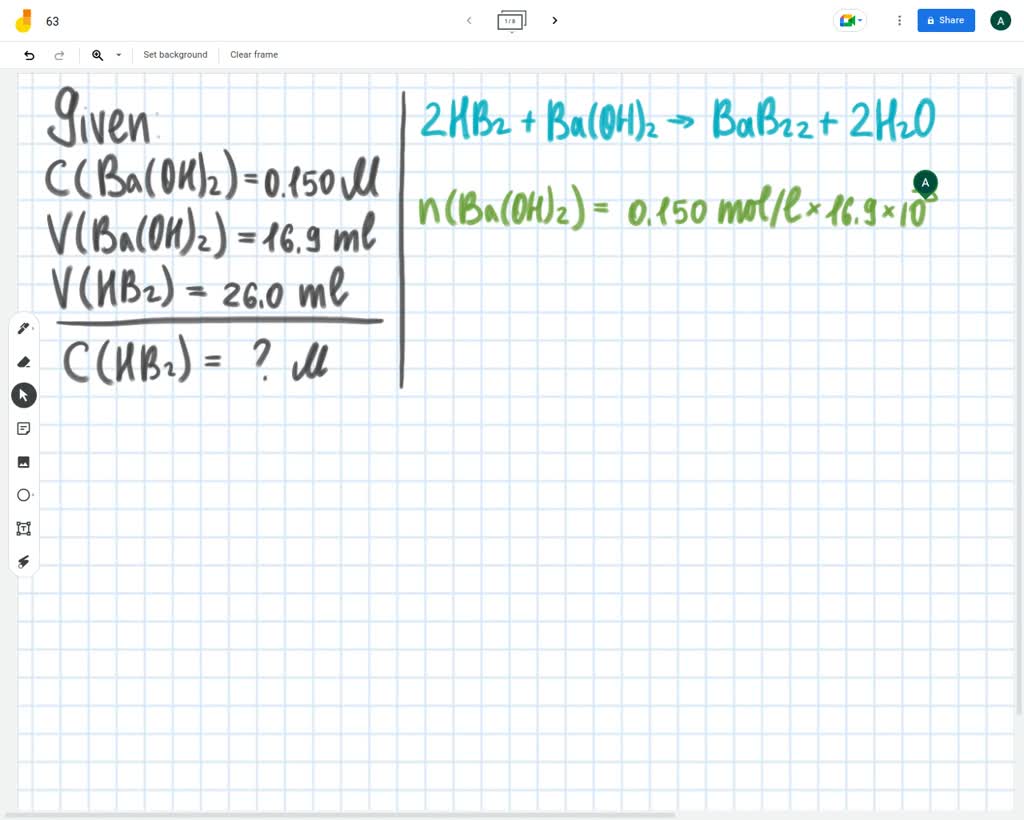 63
1 / 8
Share
A
Set background
Clear frame
Given:
C(Ba(OH)2) = 0.150 M
V(Ba(OH)2) = 16.9 ml
V(HBr) = 26.0 ml
C(HBr) = ? M
2HBr + Ba(OH)2 → BaBr2 + 2H2O
n(Ba(OH)2) = 0.150 mol/l × 16.9 × 10
A